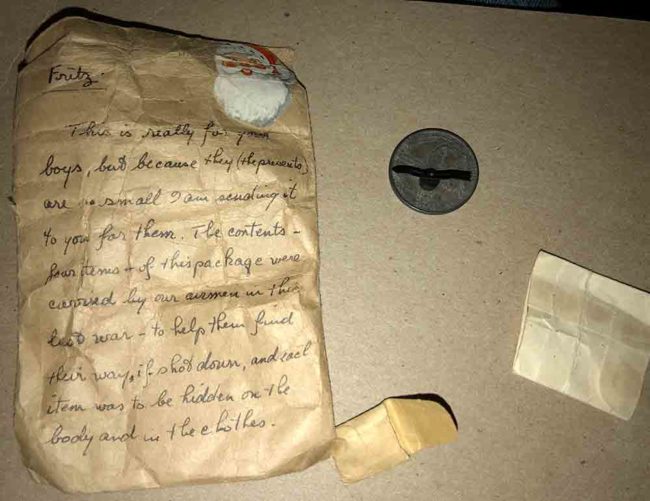 Fritz.
This is really for your
boys, but because they (the presents)
are so small I am sending it
to you for them. The contents -
four items - of this package were
carried by our airmen in this
last war - to help them find
their way, if shot down, and each
item was to be hidden on the
body and in the clothes.